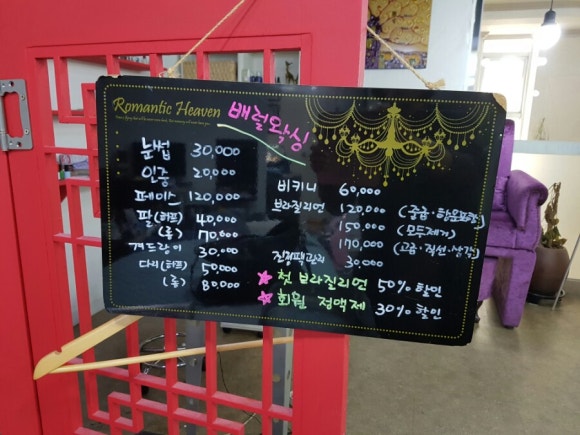 Romantic Heaven 배럴왁싱
눈썹 30,000
인중 20,000
페이스 120,000
팔(하프) 40,000
(풀) 70,000
겨드랑이 30,000
다리(하프) 50,000
(풀) 80,000
비키니 60,000
브라질리언 120,000 (중급·항문포함)
150,000 (모두제거)
170,000 (고급·직선·삼각)
진정팩관리 30,000
★ 첫 브라질리언 50% 할인
★ 회원 정액제 30% 할인